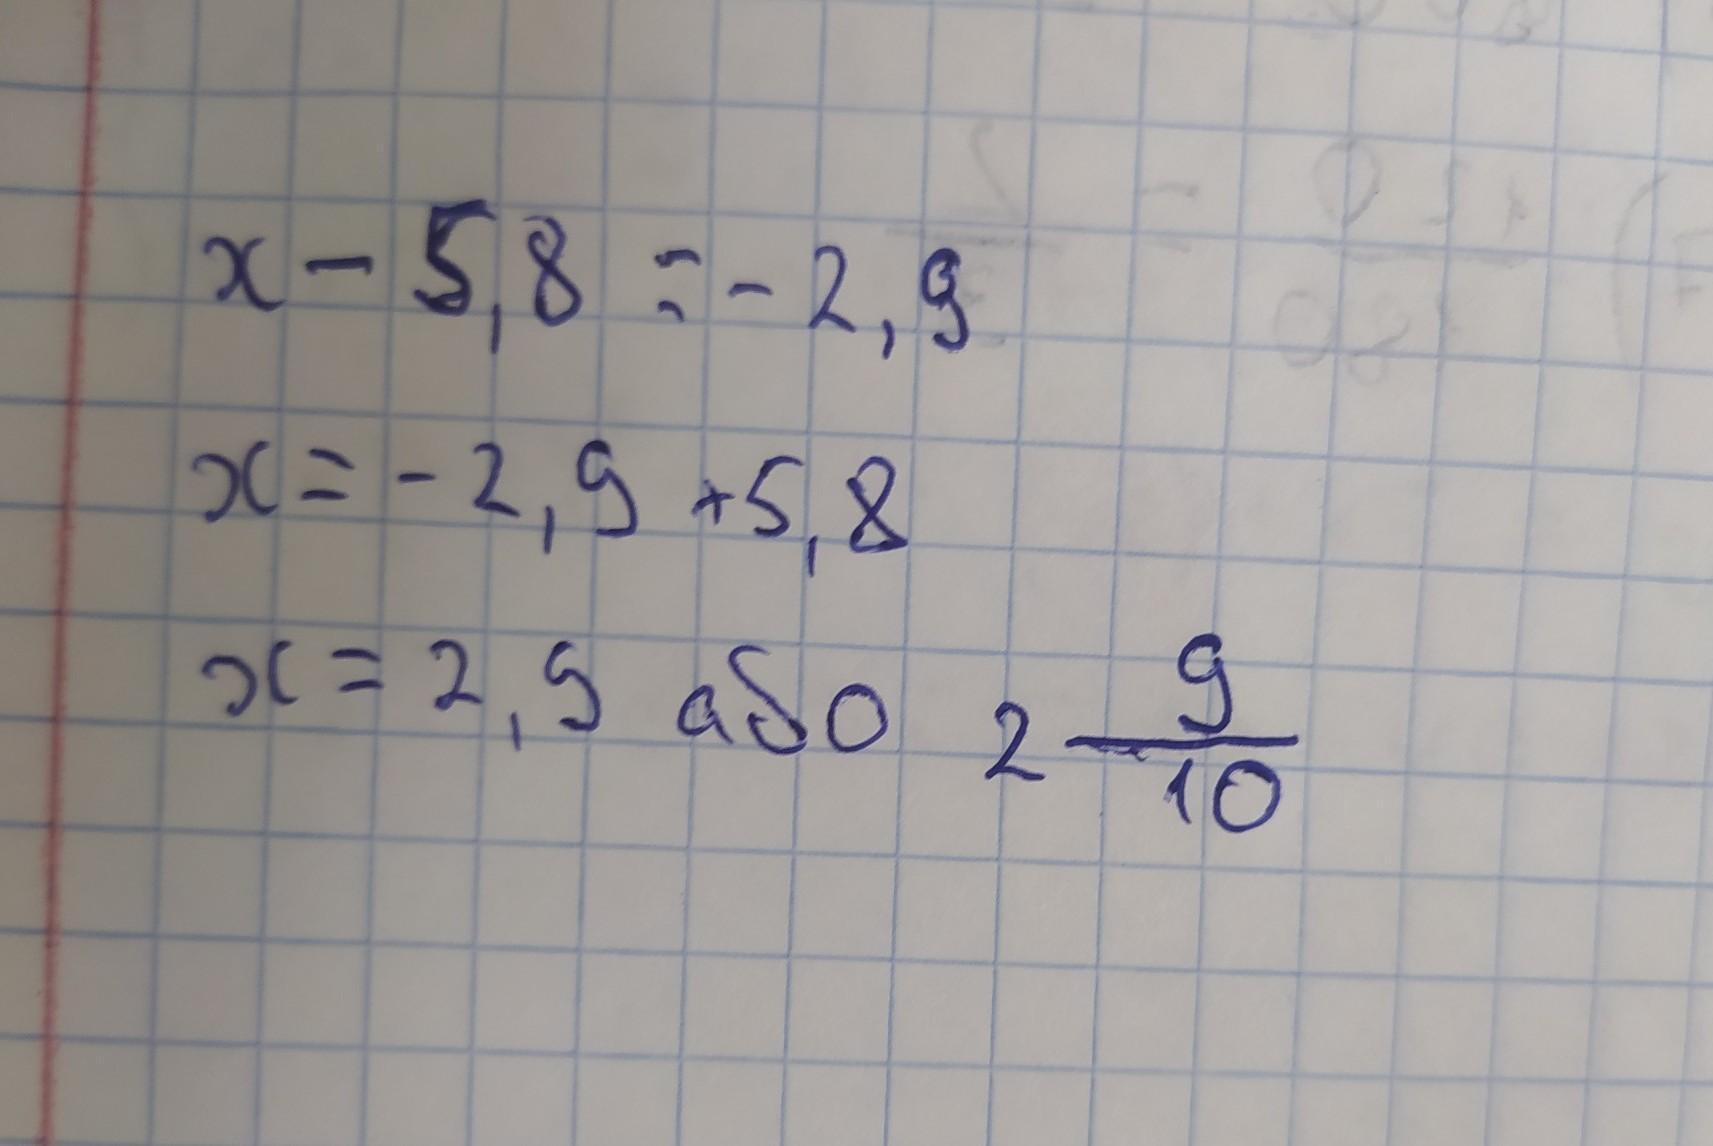 x - 5,8 = - 2,9
x = - 2,9 + 5,8
x = 2,9 або 2 9/10